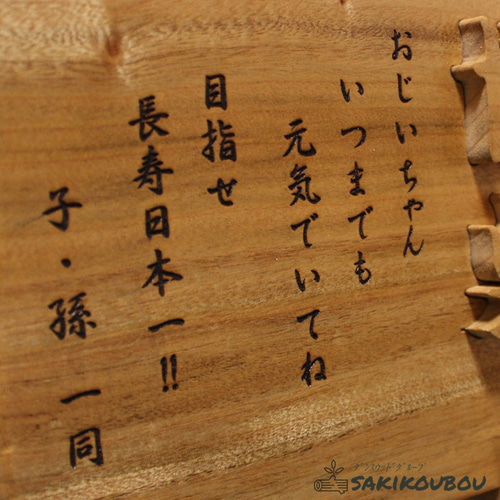 おじいちゃん
いつまでも
元気でいてね
目指せ
長寿日本一!!
子・孫 一同
SAKIKOUBOU